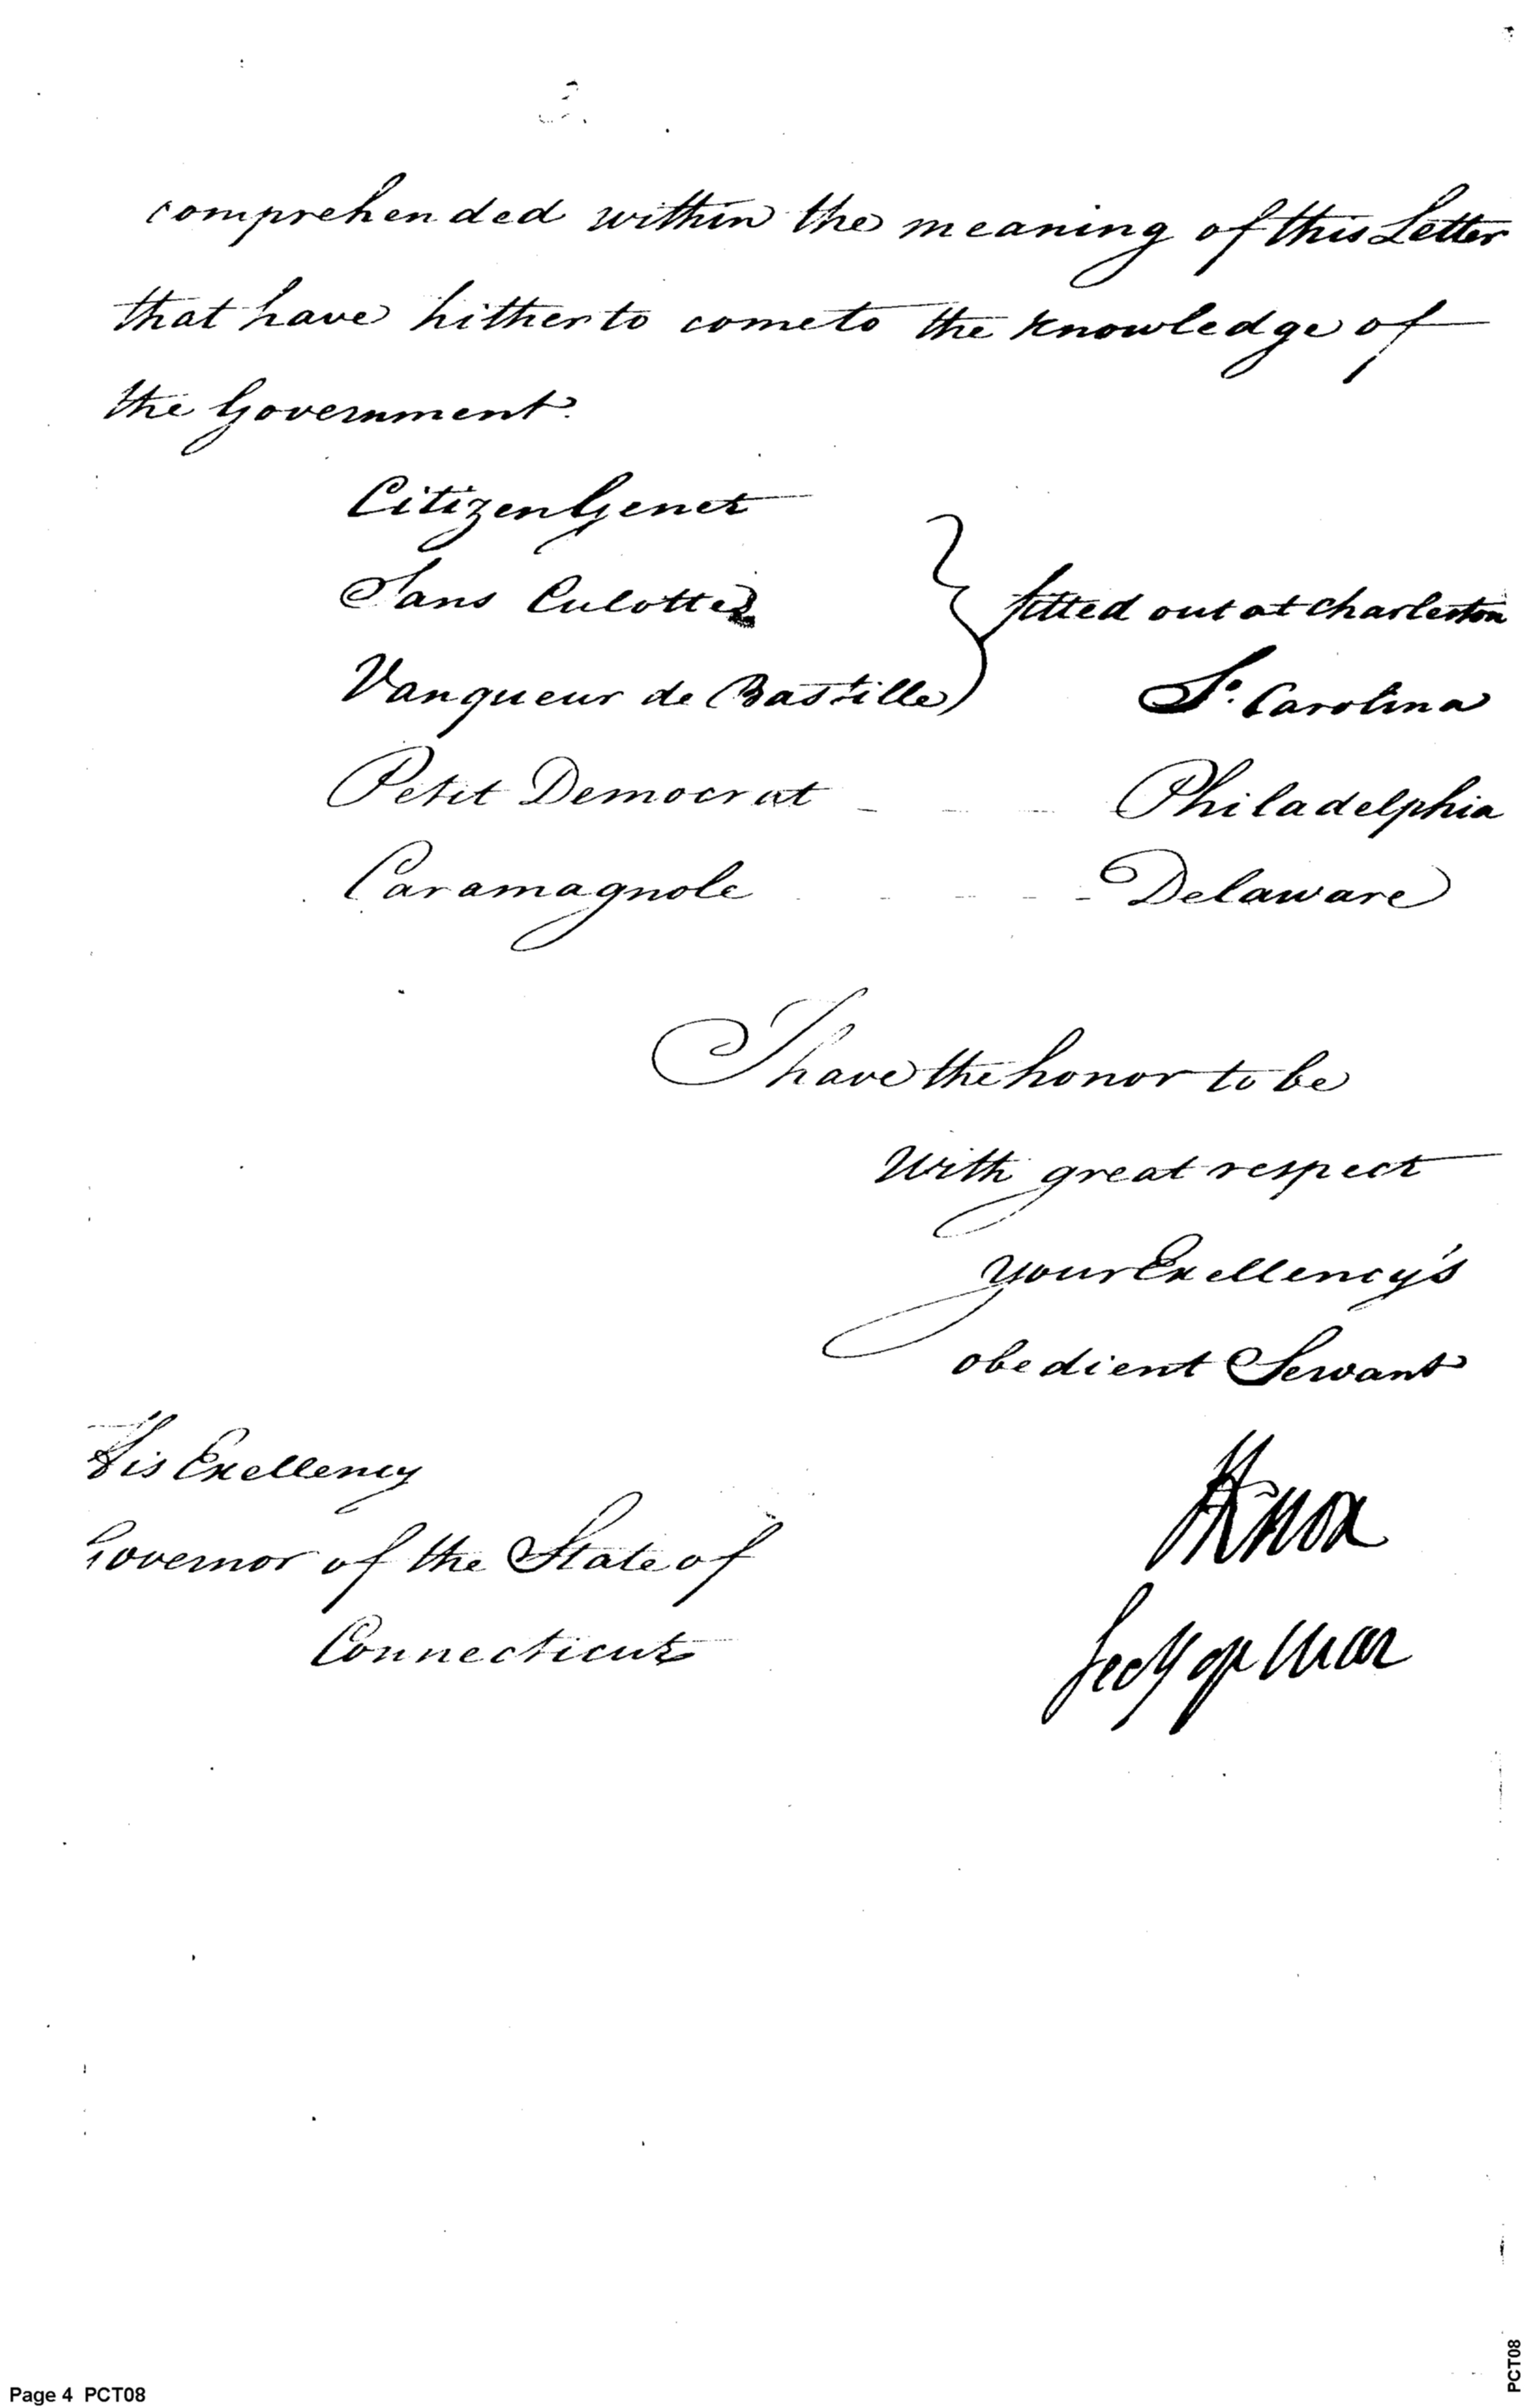 comprehended within the meaning of this Letter
that have hitherto come to the knowledge of
the Government.
Citizen Genet
Sans Culottes
fitted out at Charleston
Vanqueur de Bastille
So. Carolina
Petit Democrat - - - Philadelphia
Caramagnole - - - - Delaware
I have the honor to be
With great respect
your Exellency's
obedient Servant
His Exellency
HKnox
Governor of the State of
Secy of War
Connecticut
Page 4 PCT08
PCT08